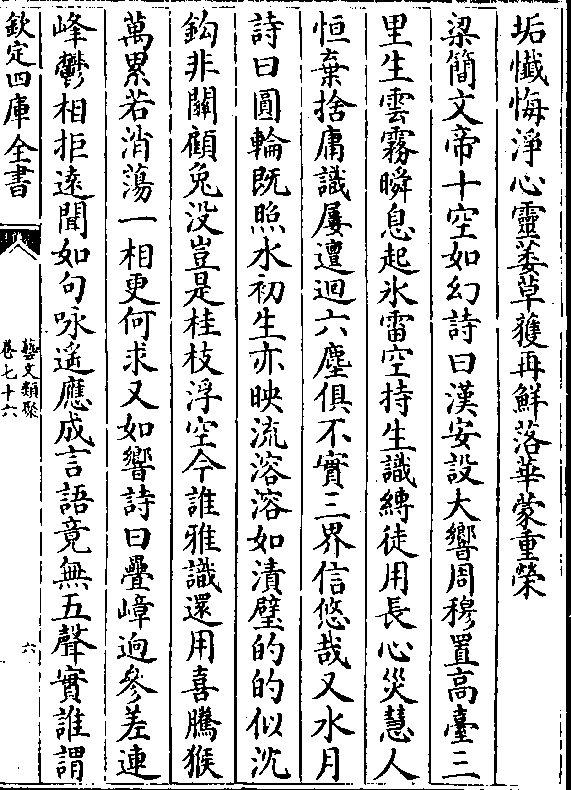 垢懺悔淨心靈萎草獲再鮮落華蒙重榮
梁簡文帝十空如幻詩曰漢安設大響周穆置高臺三
里生雲霧瞬息起氷雷空持生識縛徒用長心災慧人
恒棄捨庸識屢邅迴六塵俱不實三界信悠哉又水月
詩曰圓輪既照水初生亦映流溶溶如漬璧的的似沈
鈎非關顧兔没豈是桂枝浮空令誰雅識還用喜騰猴
萬累若消蕩一相更何求又如響詩曰疊嶂逈參差連
峰鬱相拒遠聞如句咏遙應成言語竟無五聲實誰謂
欽定四庫全書
藝文類聚
卷七十六
六